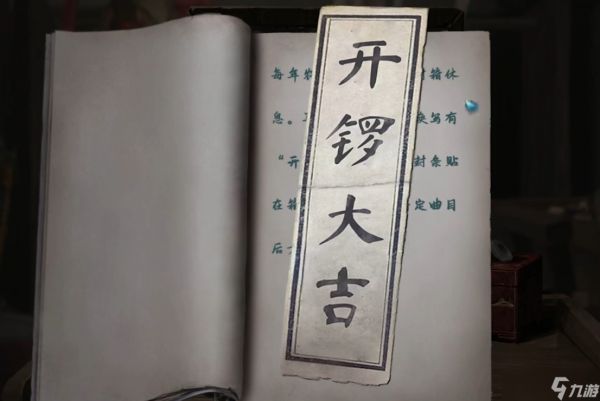 开锣大吉
每年 箱休
息。 写有
“开 封条贴
在箱 定曲目
后
九游